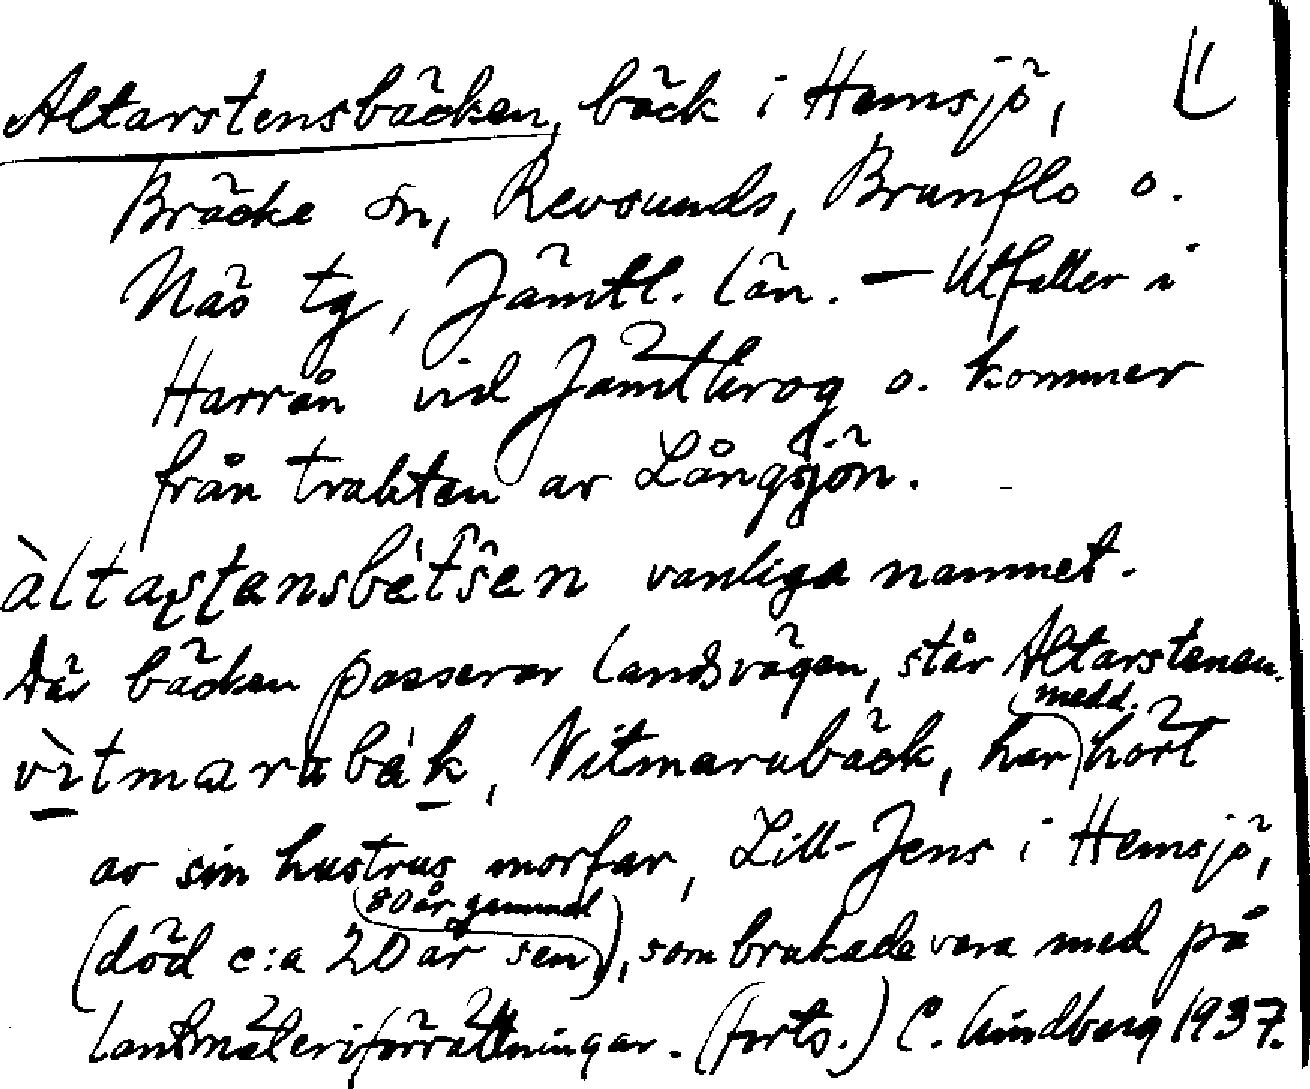 Altarstensbäcken, bäck i Hemsjö,
Bräcke sn, Revsunds, Brunflo o.
Näs tg, Jämtl. län. — Utfaller i
Harrån vid Jämtkrog o. kommer
från trakten av Långsjön.
àltaʂʈensbétšen vanliga namnet.
Där bäcken passerar landsvägen, står Altarstenen.
vìtmarubák, Vitmarubäck, har medd. hört
av sin hustrus morfar, Lill-Jens i Hemsjö,
(död c:a 20 år sen 80 år gammal), som brukade vara med på
lantmäteriförrättningar. (forts.) C. Lindberg 1937.